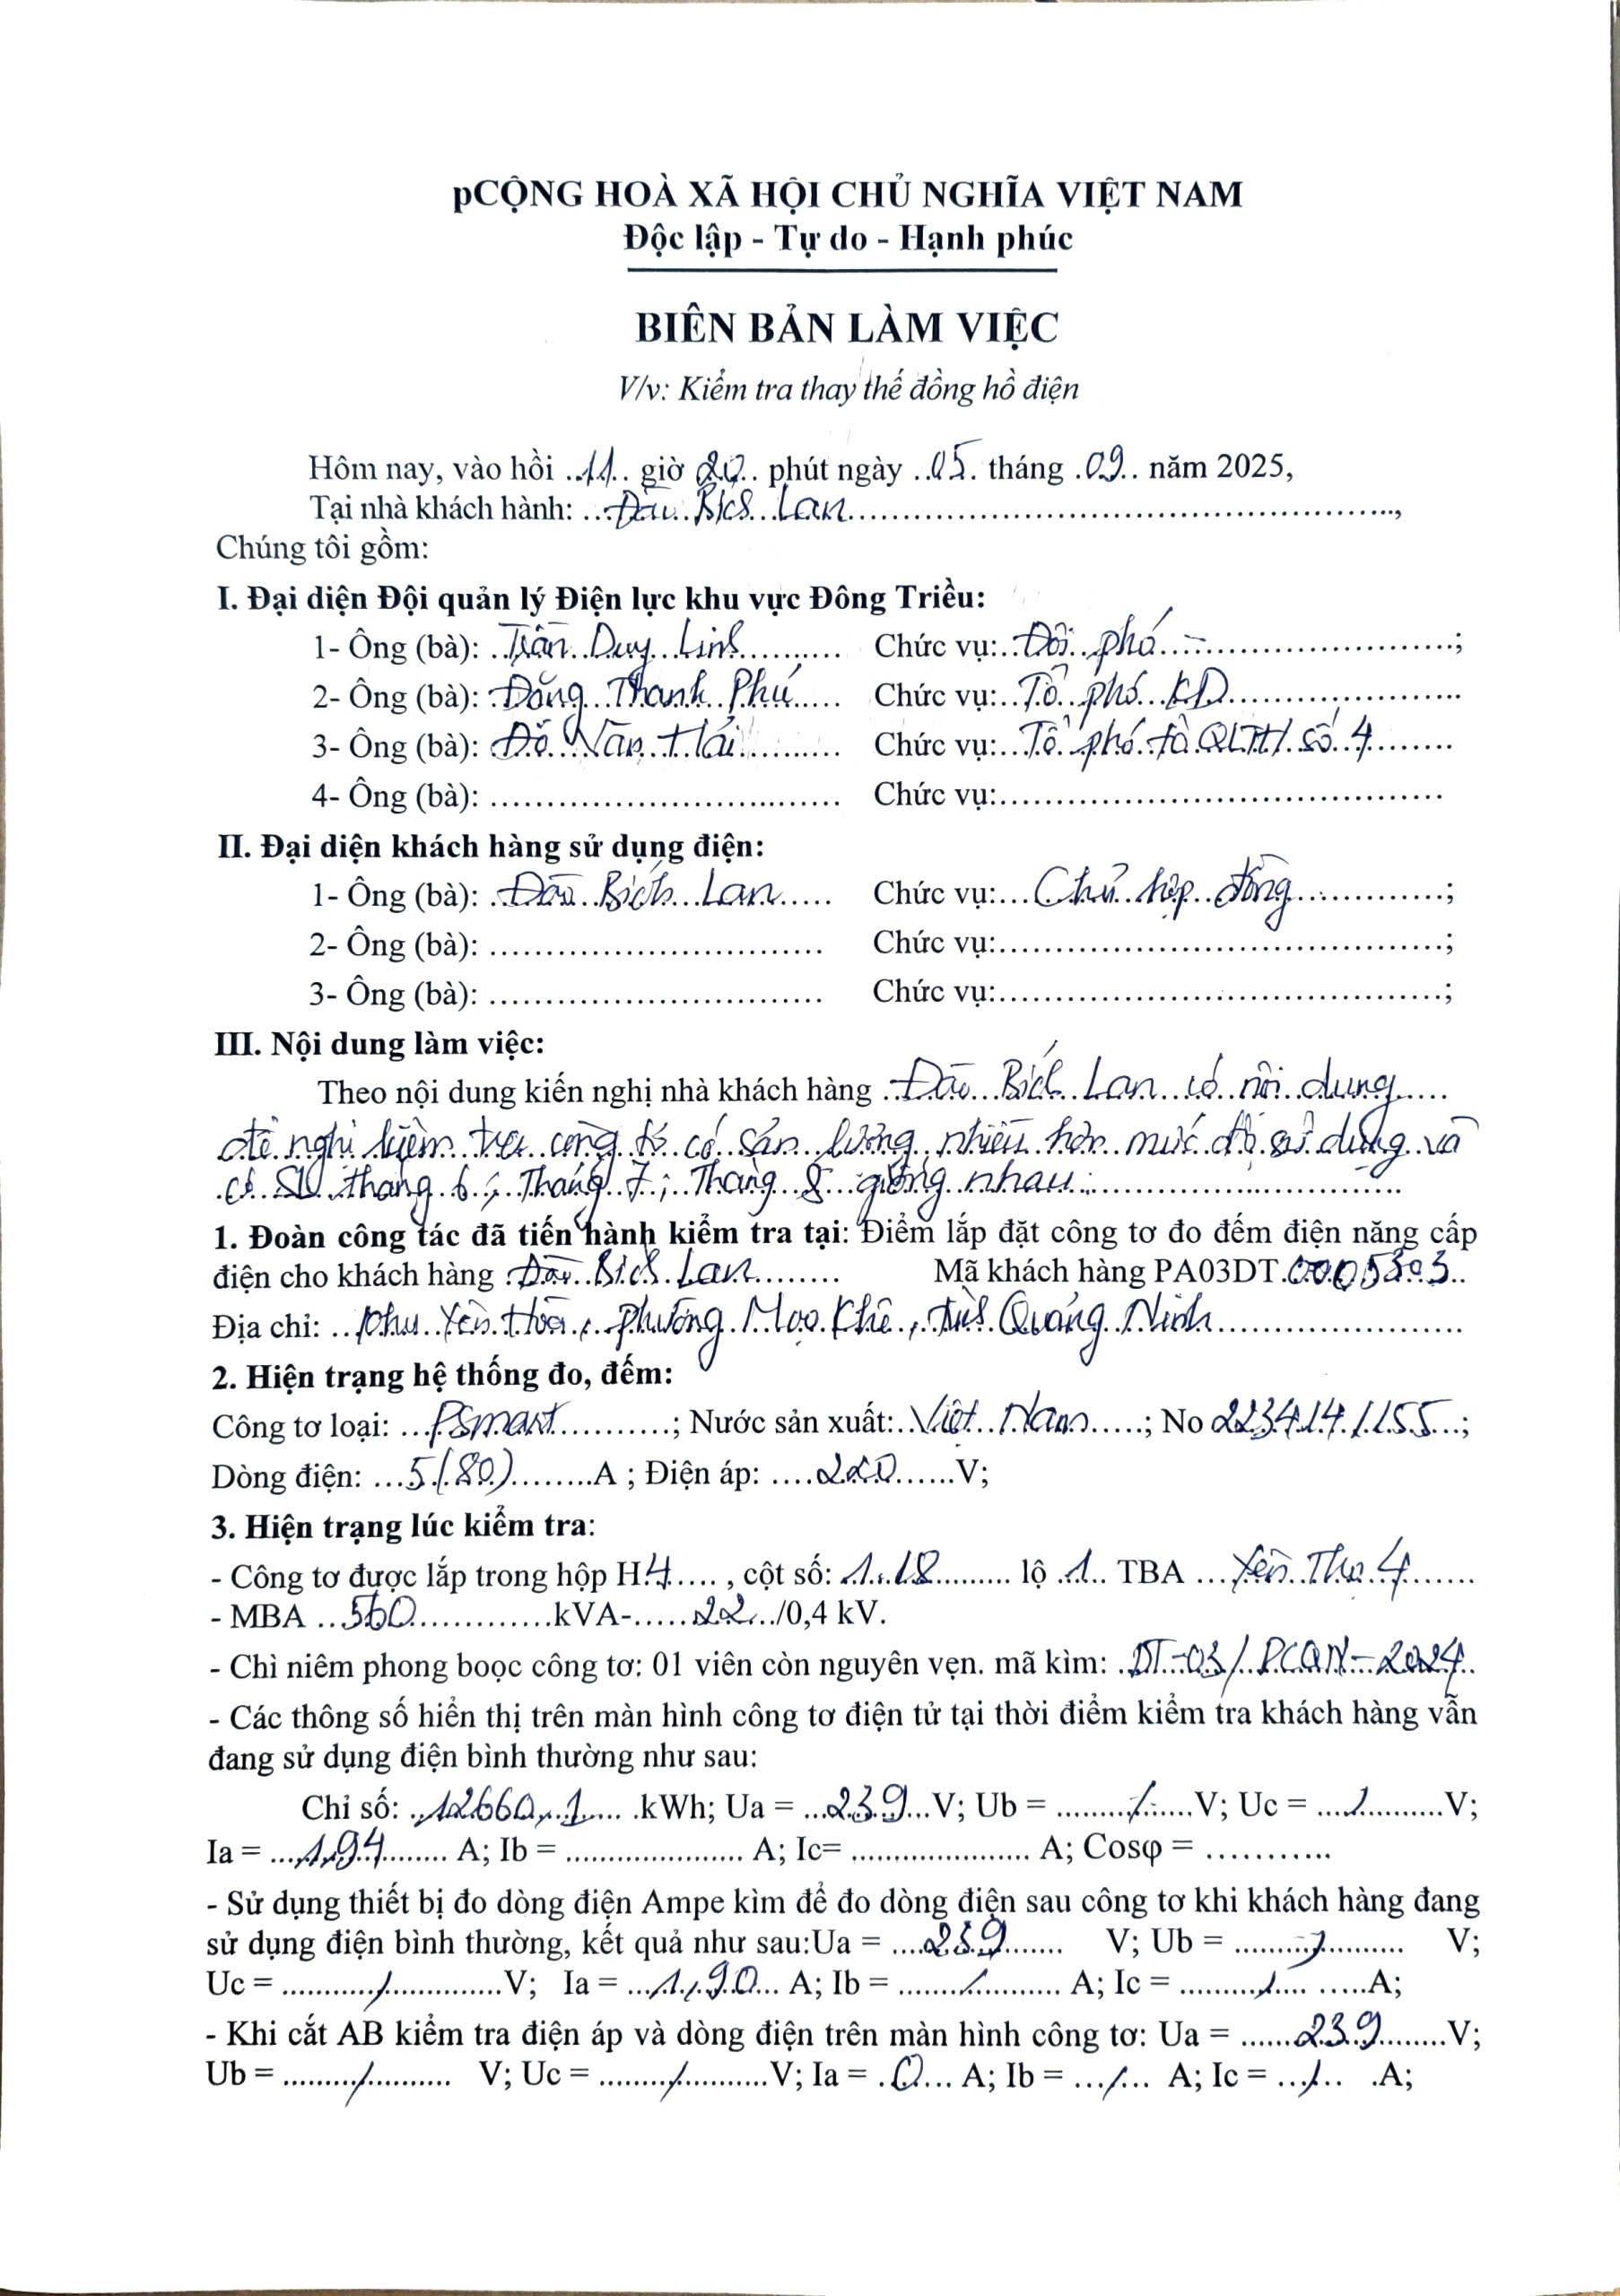 pCỘNG HOÀ XÃ HỘI CHỦ NGHĨA VIỆT NAM
Độc lập - Tự do - Hạnh phúc
BIÊN BẢN LÀM VIỆC
V/v: Kiểm tra thay thế đồng hồ điện
Hôm nay, vào hồi ..11.. giờ 20.. phút ngày ..05. tháng .09.. năm 2025,
Tại nhà khách hành: ...Đào Bích Lan...,
Chúng tôi gồm:
I. Đại diện Đội quản lý Điện lực khu vực Đông Triều:
1- Ông (bà): Trần Duy Linh Chức vụ: Đội phó ;
2- Ông (bà): Đặng Thanh Phú Chức vụ: Tổ phó KD
3- Ông (bà): Đỗ Văn Hải Chức vụ: Tổ phó tổ QLTH số 4
4- Ông (bà): ........ Chức vụ:........
II. Đại diện khách hàng sử dụng điện:
1- Ông (bà): Đào Bích Lan Chức vụ: Chủ hợp đồng ;
2- Ông (bà): ........ Chức vụ:........;
3- Ông (bà): ........ Chức vụ:........;
III. Nội dung làm việc:
Theo nội dung kiến nghị nhà khách hàng Đào Bích Lan có nội dung
đề nghị kiểm tra công tơ có sản lượng nhiều hơn mức độ sử dụng và
có SL tháng 6 ; Tháng 7 ; Tháng 8 giống nhau
1. Đoàn công tác đã tiến hành kiểm tra tại: Điểm lắp đặt công tơ đo đếm điện năng cấp
điện cho khách hàng Đào Bích Lan Mã khách hàng PA03DT.0005303..
Địa chỉ: khu Yên Hòa, phường Mạo Khê, tỉnh Quảng Ninh
2. Hiện trạng hệ thống đo, đếm:
Công tơ loại: PSmart ; Nước sản xuất: Việt Nam ; No 2234141155 ;
Dòng điện: ...5(80)........A ; Điện áp: ....220......V;
3. Hiện trạng lúc kiểm tra:
- Công tơ được lắp trong hộp H.4..... , cột số: 1.18 lộ .1.. TBA Yên Thọ 4
- MBA ..560.............kVA-......22.../0,4 kV.
- Chì niêm phong boọc công tơ: 01 viên còn nguyên vẹn. mã kìm: DT-03/PCQN-2024
- Các thông số hiển thị trên màn hình công tơ điện tử tại thời điểm kiểm tra khách hàng vẫn
đang sử dụng điện bình thường như sau:
Chỉ số: 12660,1 kWh; Ua = ...239...V; Ub = ......../......V; Uc = ..../..........V;
Ia = ...1,94........ A; Ib = ..................... A; Ic= ..................... A; Cosφ = ...........
- Sử dụng thiết bị đo dòng điện Ampe kìm để đo dòng điện sau công tơ khi khách hàng đang
sử dụng điện bình thường, kết quả như sau:Ua = ....239....... V; Ub = ........./.......... V;
Uc = .........../..............V; Ia = ...1,90... A; Ib = ......./.......... A; Ic = ........./.... .....A;
- Khi cắt AB kiểm tra điện áp và dòng điện trên màn hình công tơ: Ua = ......239........V;
Ub = ......../.......... V; Uc = ......../...........V; Ia = .0.... A; Ib = .../... A; Ic = .../... .A;